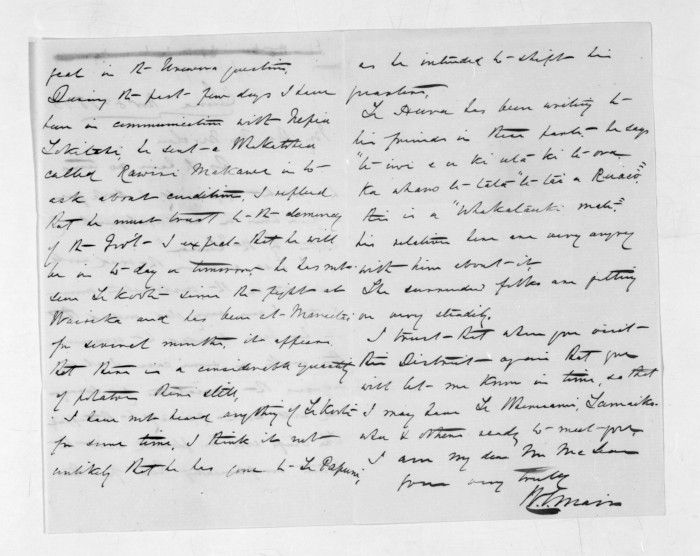 great in the Urewera question,
During the past few days I have
been in communication with Nepia
Te Kiteti, he sent a Whakatohea
called Rawiri Makawe in to
ask about conditions, I replied
that he must trust to the clemency
of the Govt. I expect that he will
be in to day or tomorrow he has not
seen Te Kooti since the fight at
Waioeka and has been at
for several months, it appears
that there is a considerable quantity
of potatoes there still,
I have not heard anything of Te Kooti
for some time, I think it not
unlikely that he has gone to Te Papuni,
as he intended to shift his
quarters,
Te has been writing to
his friends in these parts he says
"te iwi e ki uta ki te ora
ka te tai a
this is a "Whakatauki mate"
his relatives here are very angry
with him about it,
The surrender folks are getting
on very steadily,
I trust that when you visit
this District again that you
will let me know in time, so that
I may have Te
& others ready to meet you,
I am my dear Mr McLean
yours very truly